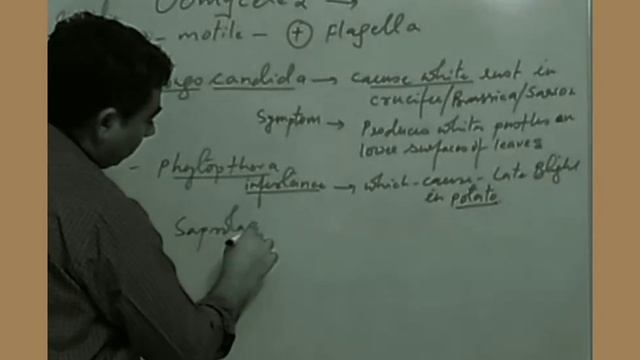 Oomycetes →
- motile - ⊕ flagella
ugo candida → cause white rust in
crucifer/Brassica/Sarson
Symptom → Produces white pustules on
lower surfaces of leaves
- Phytopthora
infestance → which-cause-Late Blight
in potato
Saprole